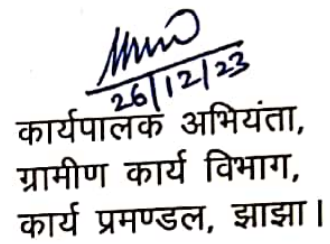 26/12/23
कार्यपालक अभियंता,
ग्रामीण कार्य विभाग,
कार्य प्रमण्डल, झाझा।